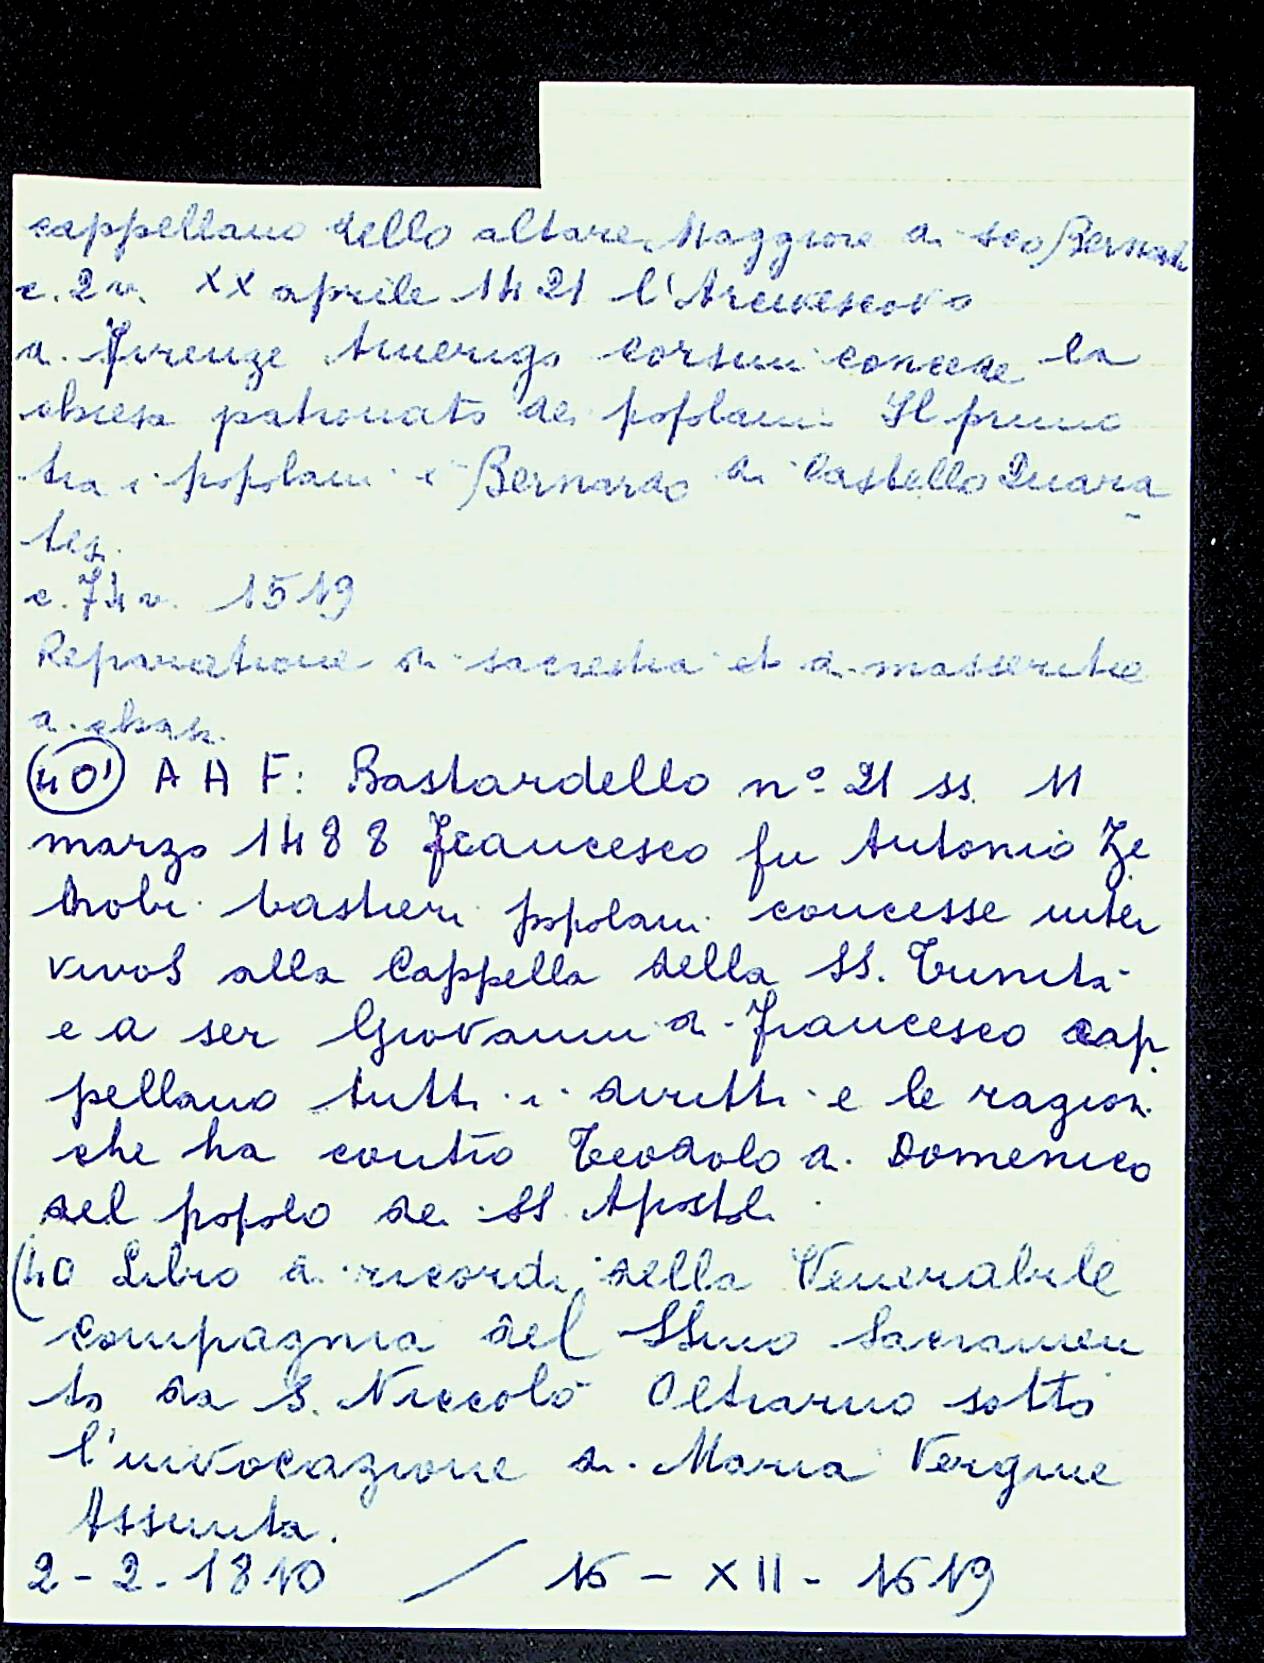 cappellano dello altare Maggiore di sco Bernar
c. 2 v. XX aprile 1421 l'Arcivescovo
di Firenze Amerigo Corsini concede la
chiesa patronato dei popolani. Il primo
tra i popolani è Bernardo di Castello Quara
tesi.
c. 74 v. 1519
Reparatione di sacrestia et di masseritie
di chiesa.
(40') A A F: Bastardello n° 21 ss. 11
marzo 1488 Francesco fu Antonio Ze
nobi bastieri popolani concesse inter
vivos alla Cappella della SS. Trinità
e a ser Giovanni di Francesco cap
pellano tutti i diritti e le ragioni
che ha contro Teodolo di Domenico
del popolo dei SS. Apostoli.
(40 Libro di ricordi della Venerabile
Compagnia del SSmo Sacramen
to da S. Niccolò Oltrarno sotto
l'invocazione di Maria Vergine
Assunta.
2 - 2 - 1810 / 16 - XII - 1619